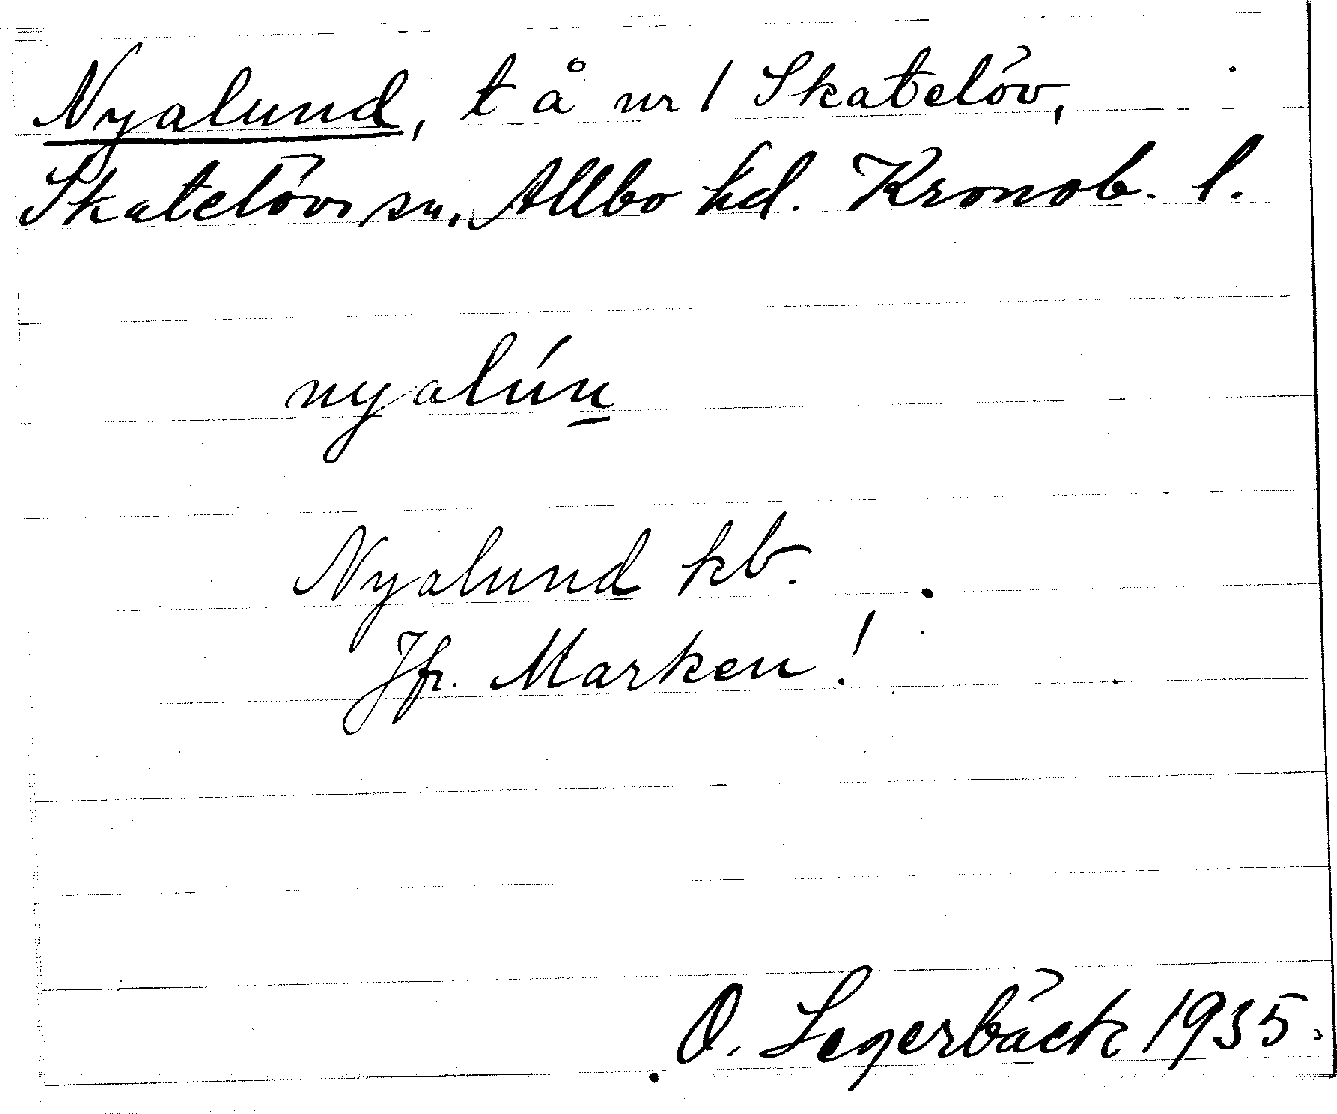 Nyalund, t å nr 1 Skatelöv,
Skatelövs sn, Allbo hd. Kronob. l.
nyalún̲
Nyalund kb.
Jfr. Marken!
O. Segerbäck 1935.